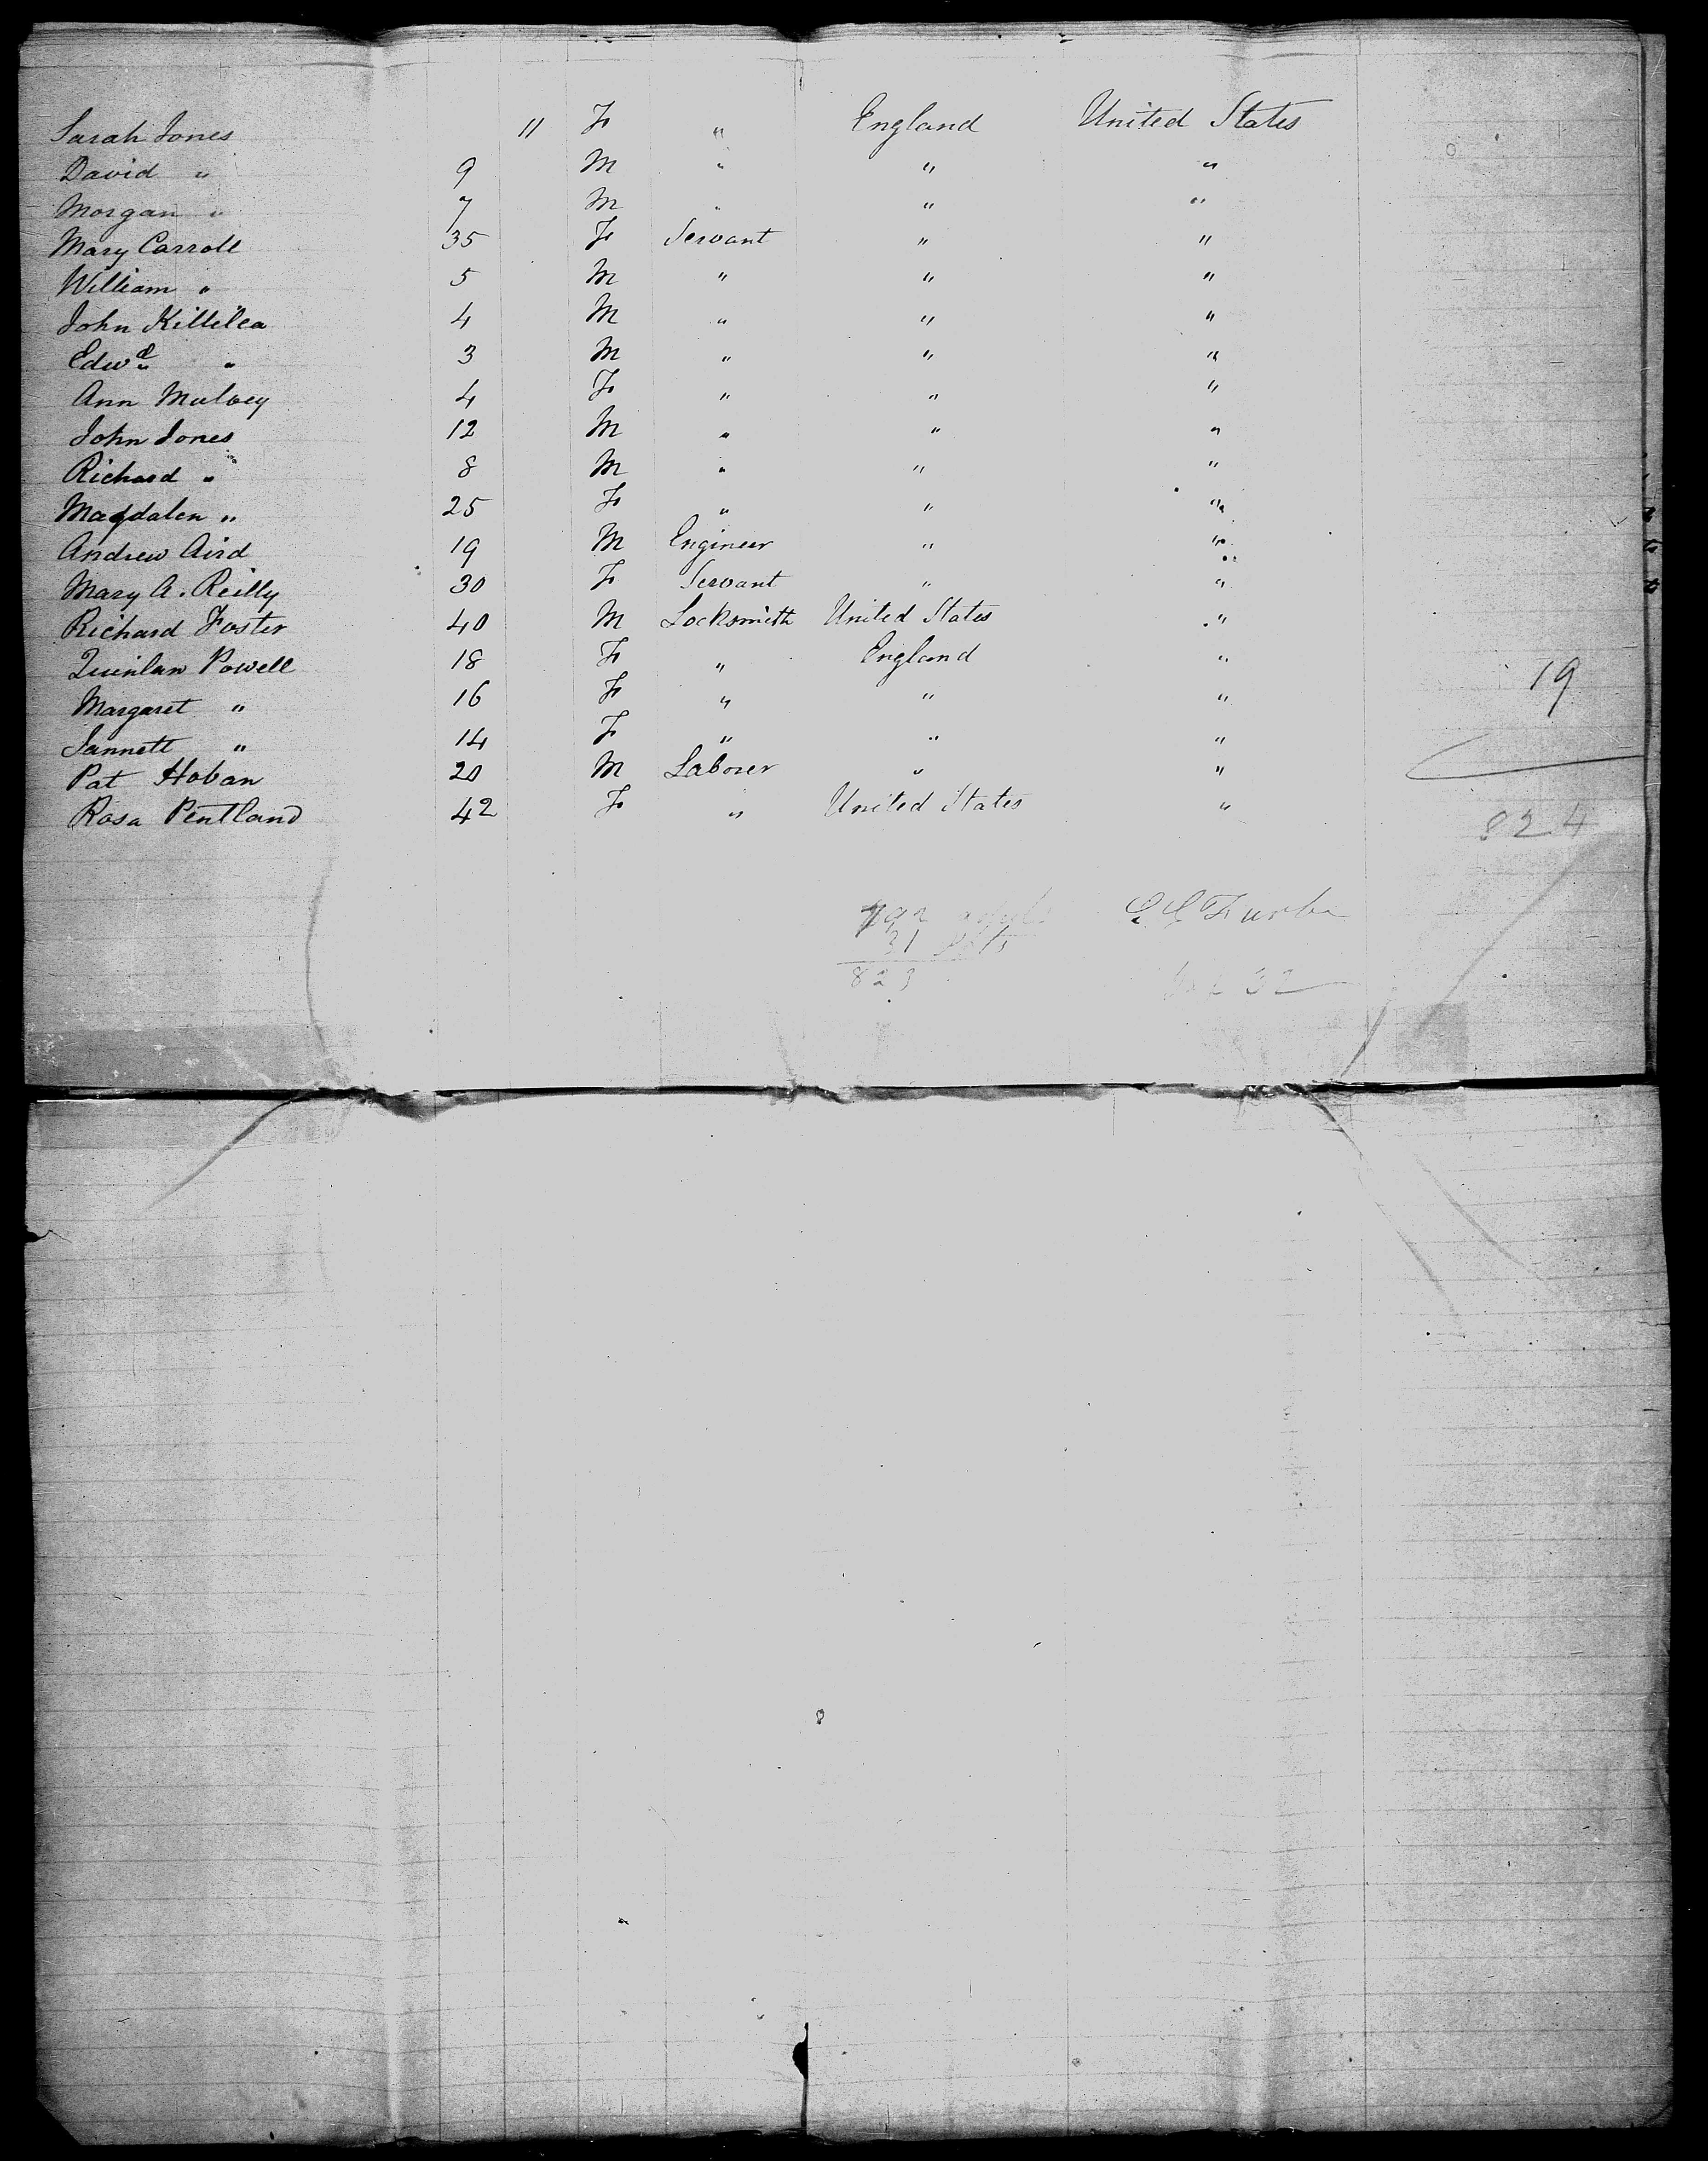 Sarah Jones 11 F " England United States
David " 9 M " " "
Morgan " 7 M " " "
Mary Carroll 35 F Servant " "
William " 5 M " " "
John Killilea 4 M " " "
Edwd " 3 M " " "
Ann Mulvey 4 F " " "
John Jones 12 M " " "
Richard " 8 M " " "
Magdalen " 25 F " " "
Andrew Aird 19 M Engineer " "
Mary A. Reilly 30 F Servant " "
Richard Foster 40 M Locksmith United States "
Quinlan Powell 18 F " England "
Margaret " 16 F " " "
Jannett " 14 F " " "
19
Pat Hoban 20 M Laborer " "
Rosa Pentland 42 F " United States "
824
792
31
823
32